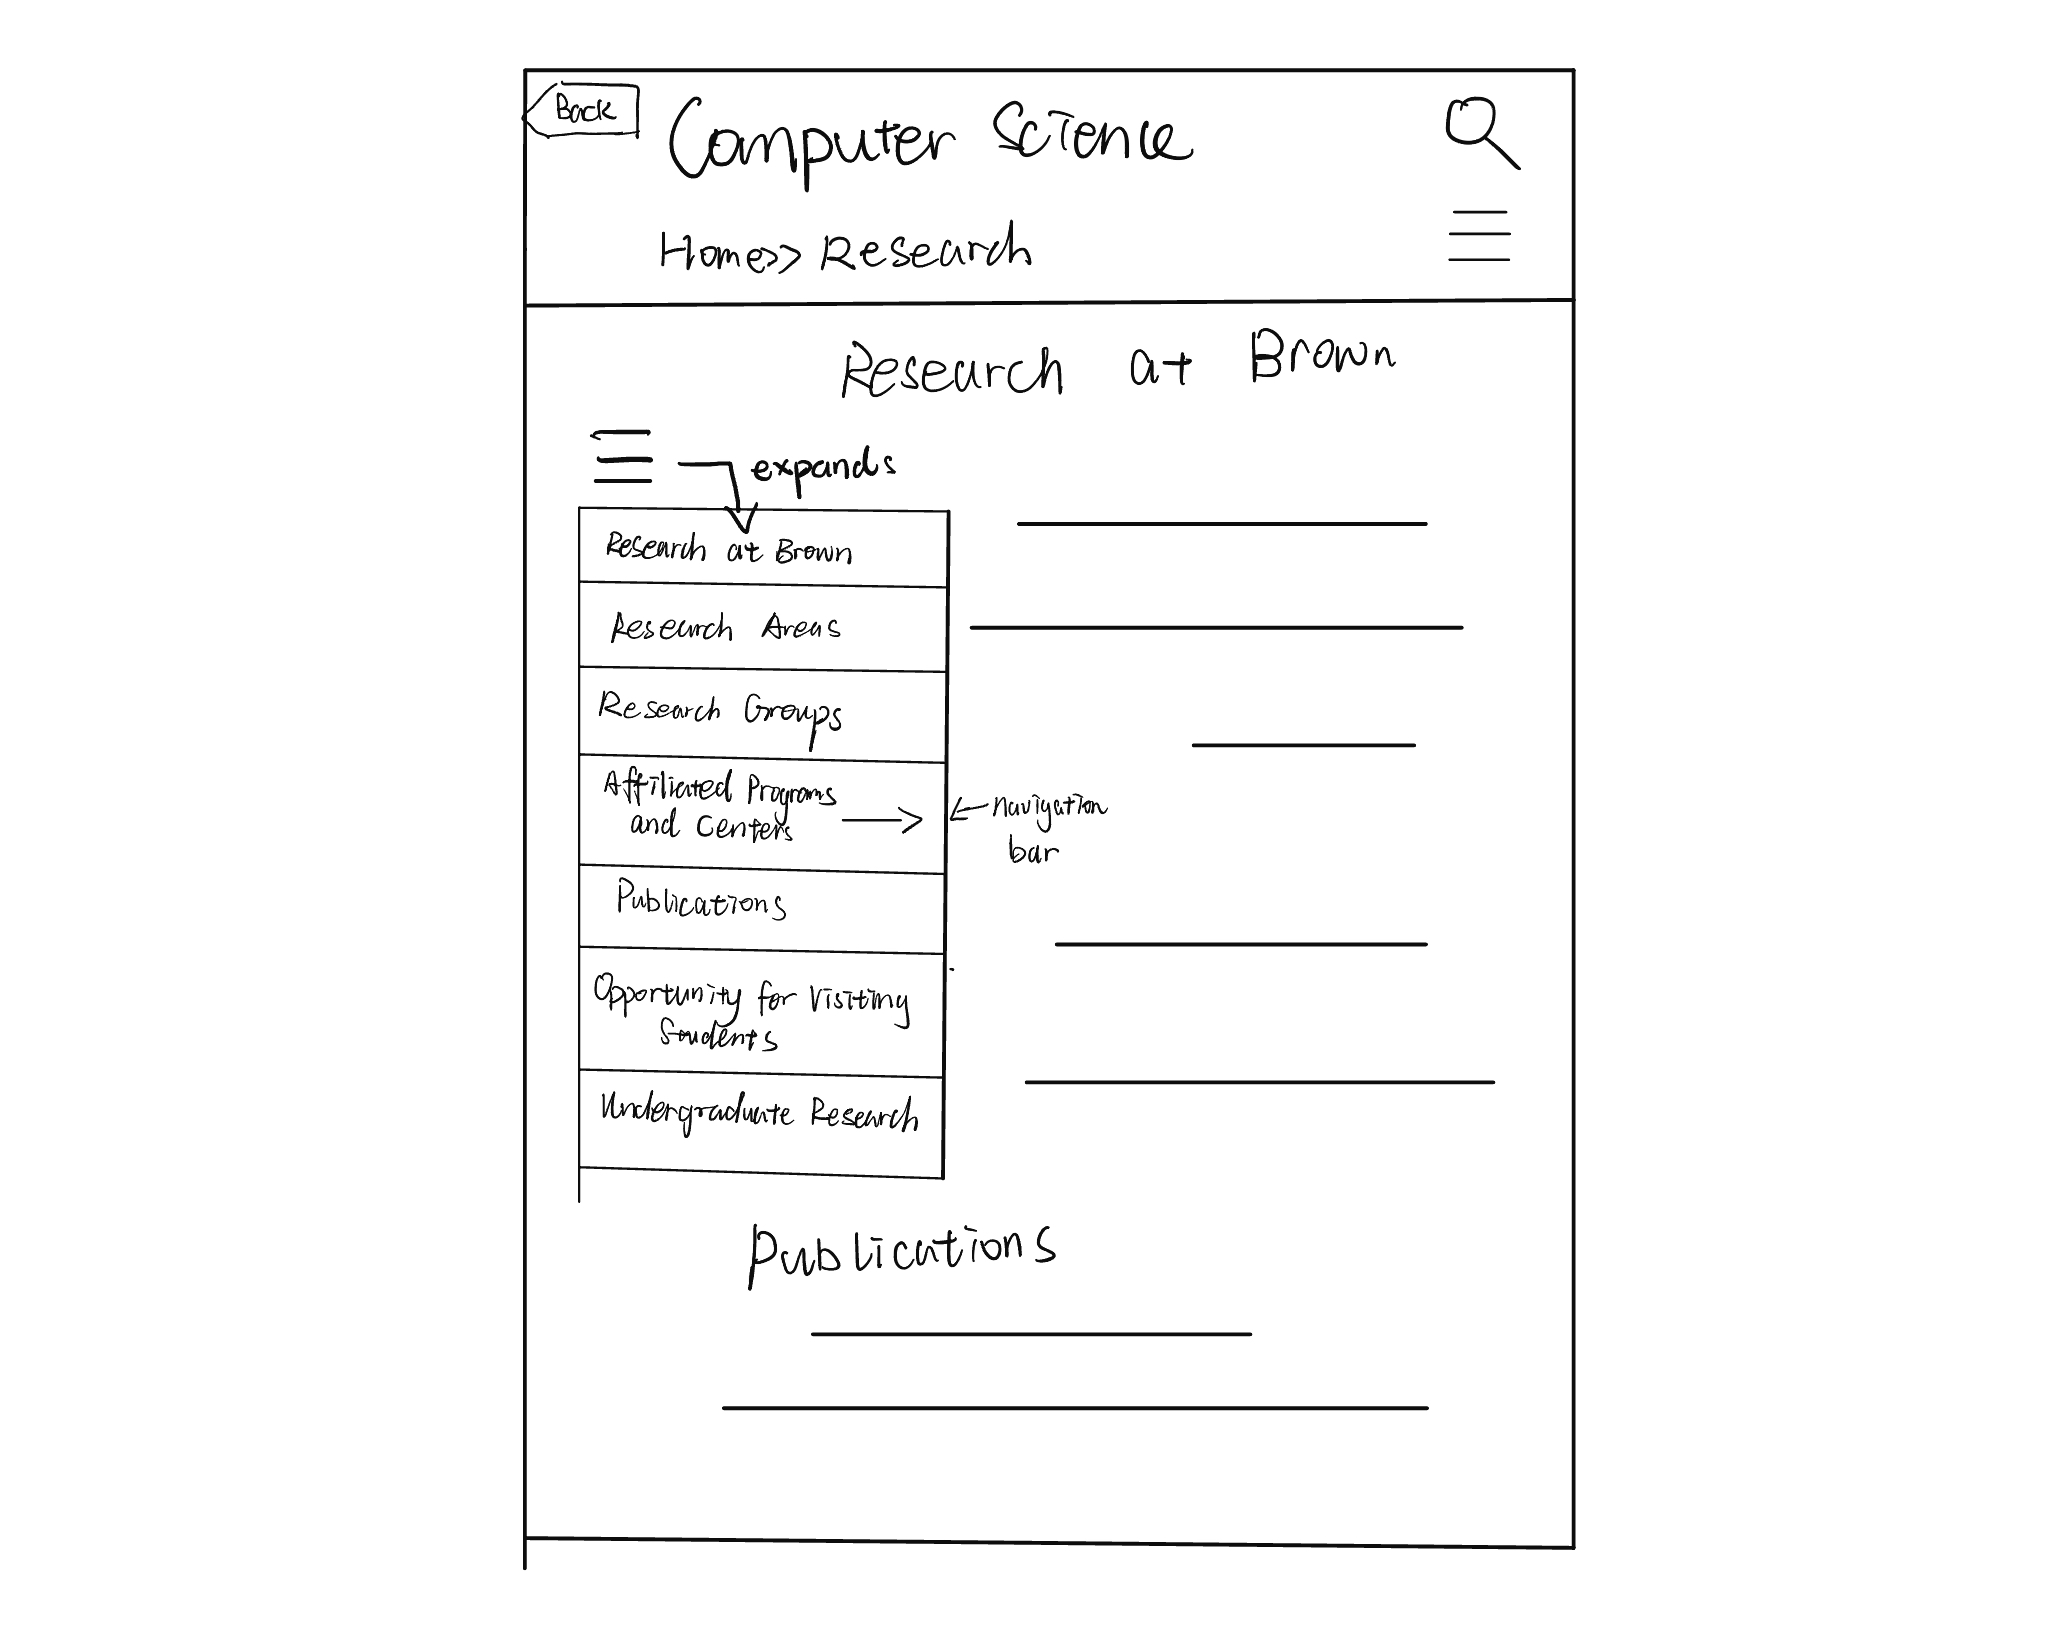 Back
Computer Science
Home>> Research
Research at Brown
expands
Research at Brown
Research Areas
Research Groups
Affiliated Programs
and Centers
navigation
bar
Publications
Opportunity for Visiting
Students
Undergraduate Research
Publications